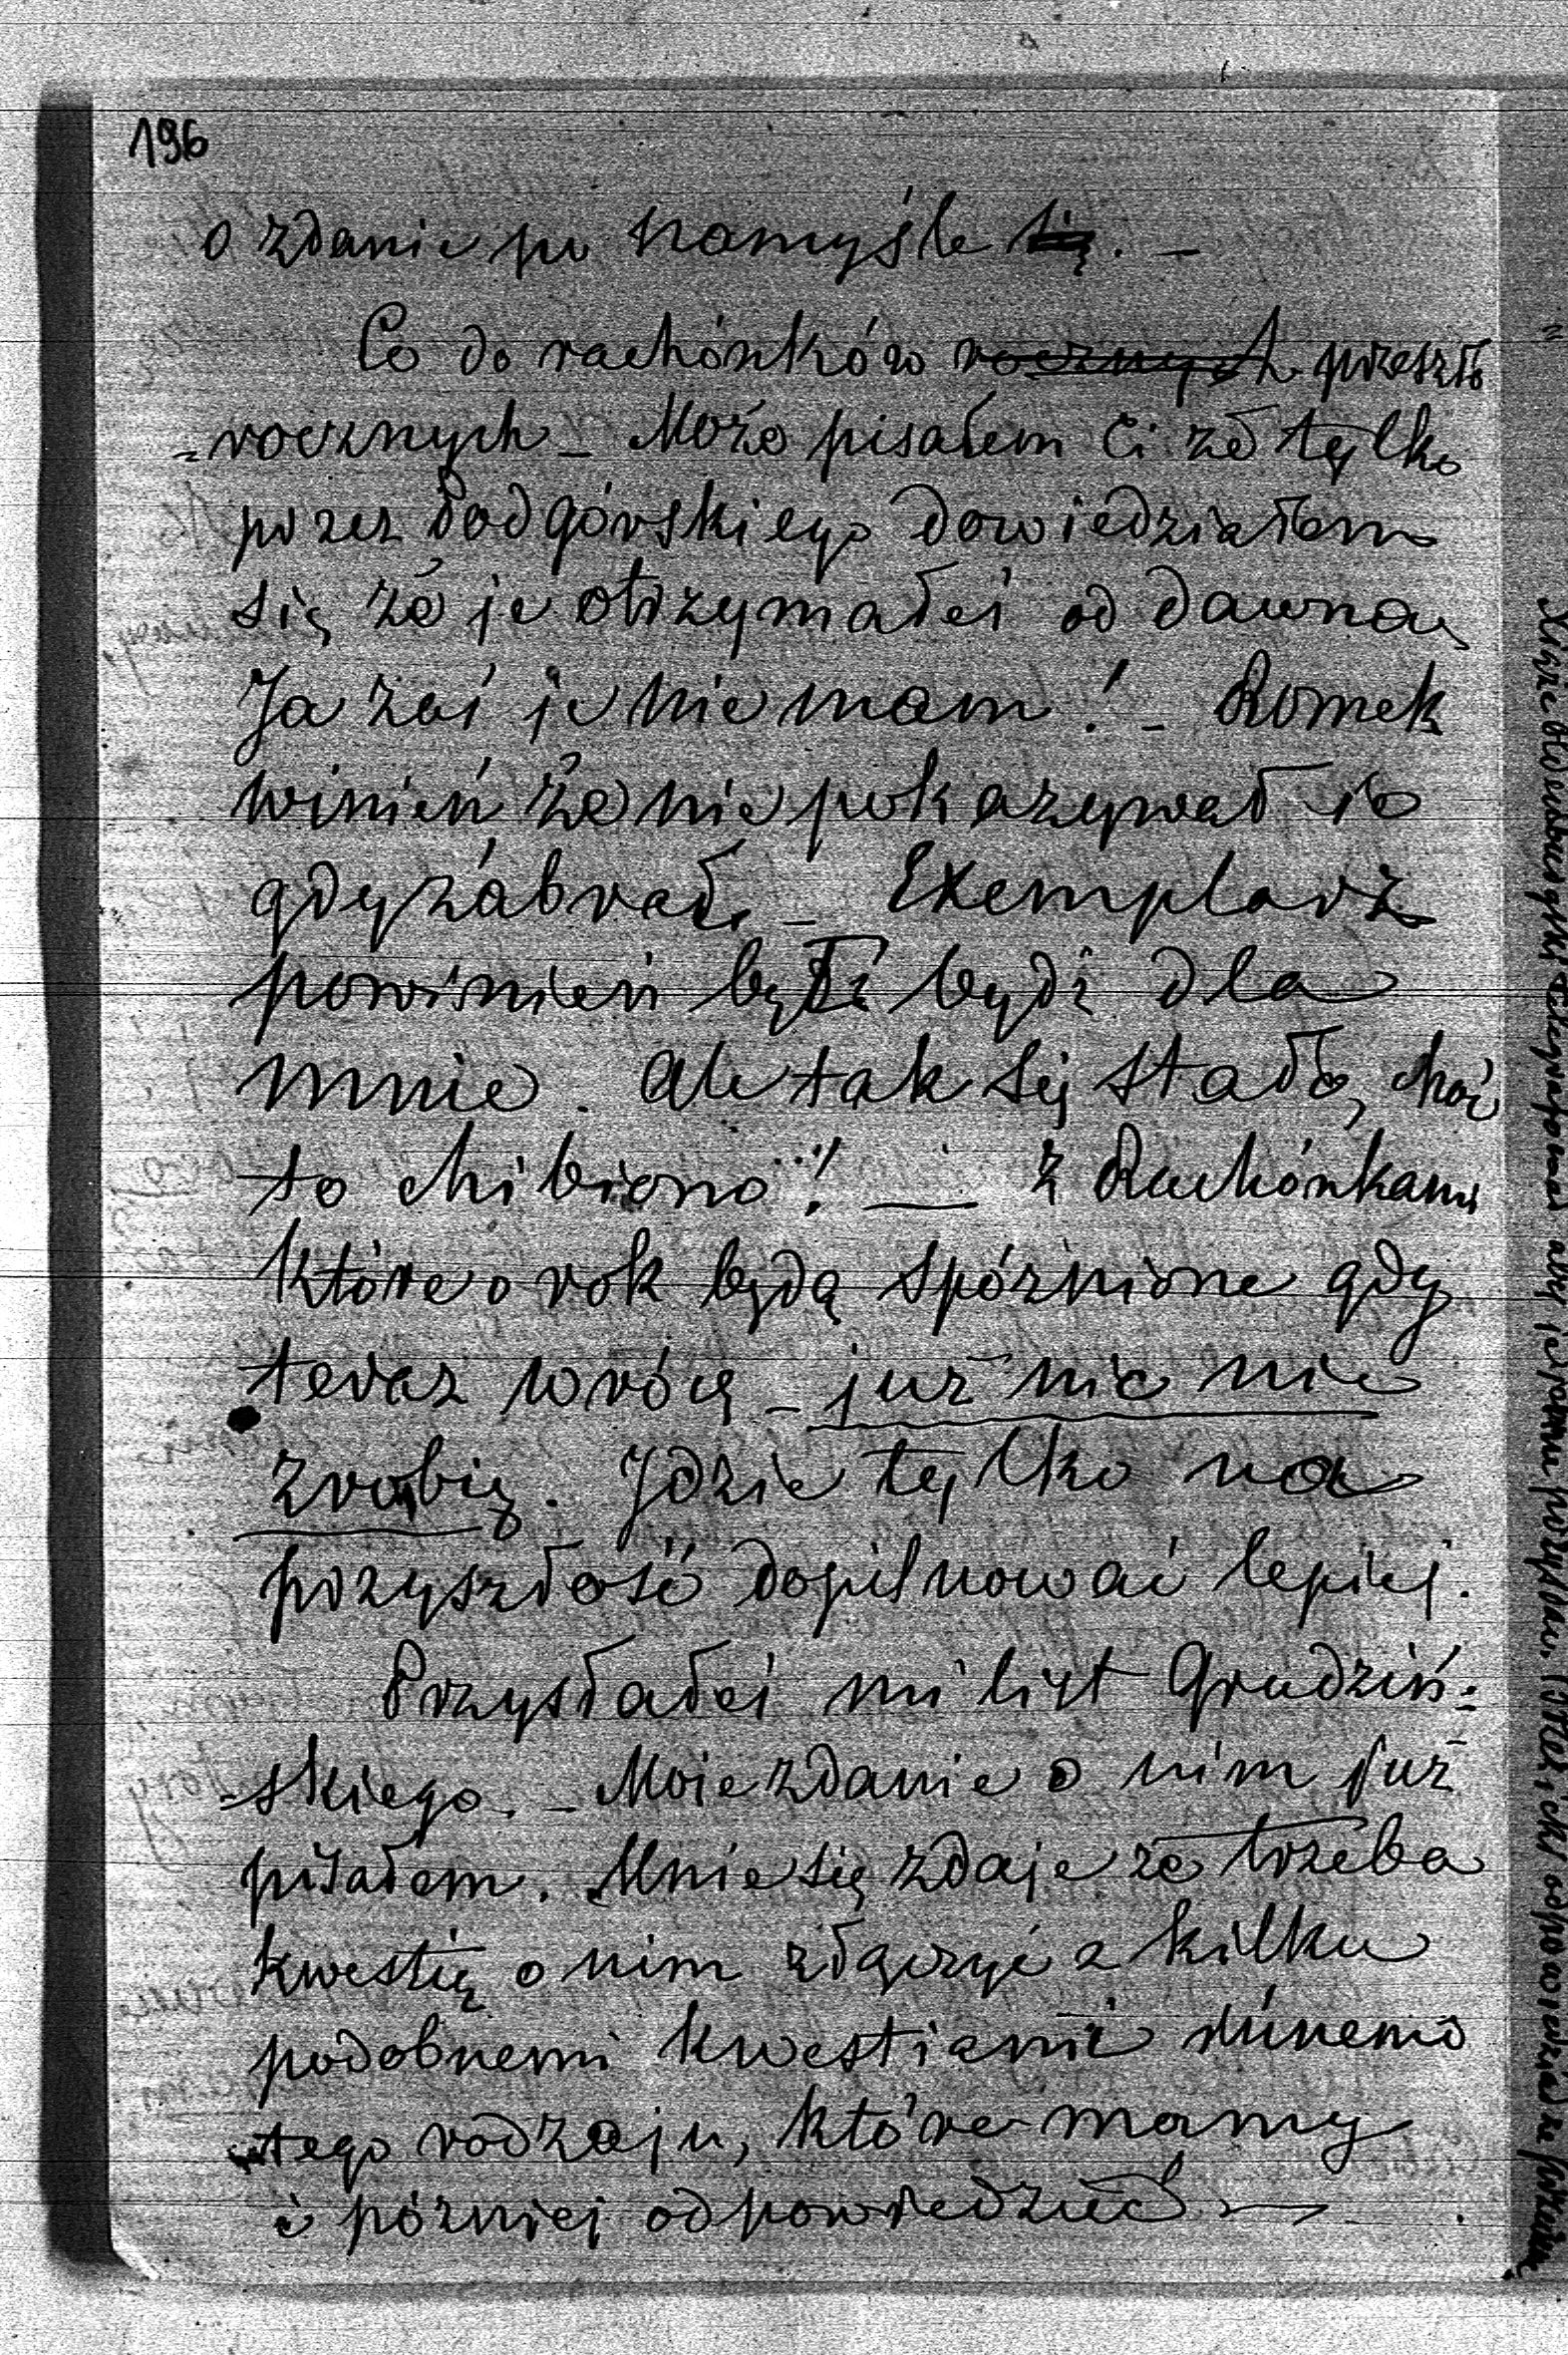 196
o zdanie po namyśle się. —
Co do rachónków rocznych przeszło
=rocznych — Może pisałem Ci że tylko
przez Podgórskiego dowiedziałem
się że je otrzymałeś od dawna,
Ja zaś je nie mam! — Romek
winień że nie pokazywał jo
gdy zabrał. — Exemplarz
powinień być bydź dla
mnie. Ale tak się stało, choć
to chibiono! — z Rachónkami
które o rok będą spóznione gdy
teraz wrócą — już nic nie
zrobię. Jdzie tylko na
przyszłość dopilnować lepiej.
Przysłałeś mi list Grudziń=
=skiego. — Moie zdanie o nim już
pisałem. Mnie się zdaje że trzeba
kwestię o nim złączyć z kilku
podobnemi kwestiami innemi
tego rodzaju, które mamy
i pózniej odpowiedzieć —